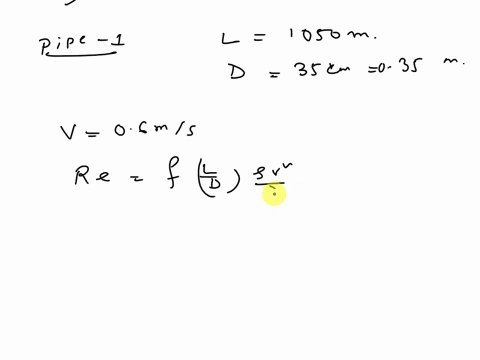 Pipe-1
L = 1050 m.
D = 35 cm = 0.35 m.
V = 0.6 m/s
Re = f (L/D) ρv²/